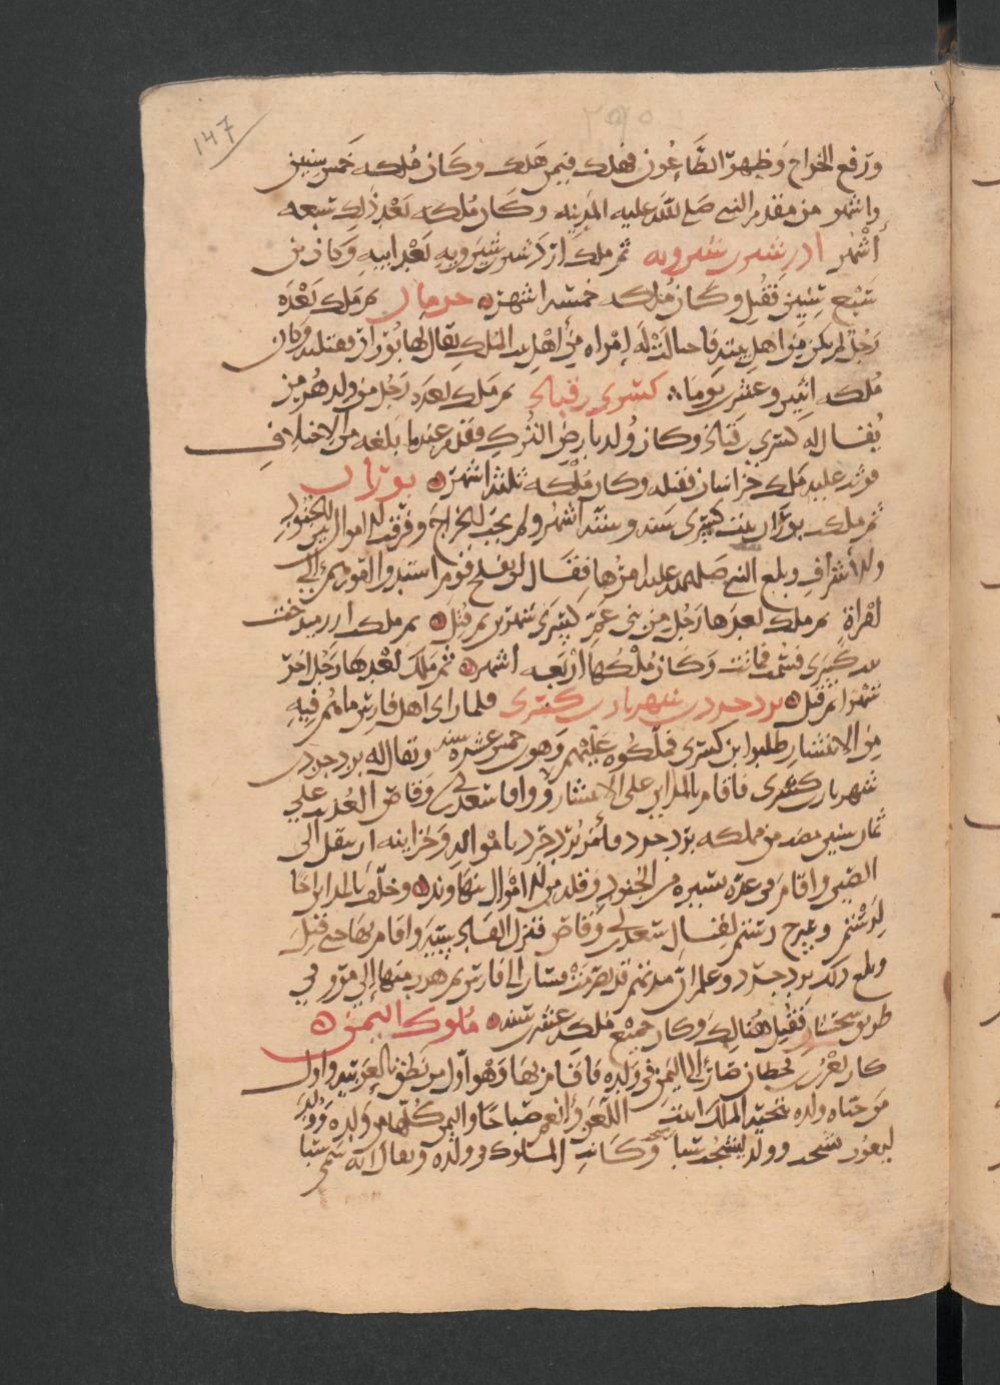 ١٤٧
ورفع الخراج وظهر الطاعون فهلك فيمن هلك وكان ملكه خمس سنين
واشهر من مقدم النبي صلى الله عليه المدينه وكان ملكه بعد ذلك سبعه
أشهر اردشير بن شيرويه ثم ملك ازدشير بن شيرويه بعد ابيه وكان بن
سبع سنين فقتل وكان ملكه خمسه اشهر ثم ملك بعده
رجل لم يكن من اهل بيته فاحتالت له امراه من اهل بيت الملك يقال لها بوران فقتلته وكان
ملكه اثنين وعشرين يوما كسرى بن قباد ثم ملك بعده رجل من ولد هرمز
يقال له كسرى بن قباد وكان ولد بارض الترك فقدم عندما بلغه من الاختلاف
فوثب عليه ملك خراسان فقتله وكان ملكه ثلثة اشهر بوران
ثم ملك بوران بنت كسرى سنه وستة اشهر ولم يجب الخراج وفرقت الاموال بين الجنود
والأشراف وبلغ النبي صلى الله عليه امرها فقال لن يفلح قوم استندوا امورهم إلى
امراة ثم ملك بعدها رجل من بني عم كسرى شهرين ثم قتل ثم ملك ازرميدخت
بنت كسرى فسمت فماتت وكان ملكها اربعه اشهر ثم ملك بعدها رجل اخر
شهرا ثم قتل يزدجرد بن شهريار بن كسرى فلما راى اهل فارس ما هم فيه
من الانتشار طلبوا ابن كسرى فملكوه عليهم وهو بن خمس عشره سنه ويقال له يزدجرد بن
شهريار بن كسرى فاقام بالمداين على الانتشار ووافا سعد بن ابي وقاص العذيب على
ثمان سنين مضت من مملكه يزدجرد فأمر يزدجرد باموالهِ وخزاينه ان ينقل الى
الصين واقام في عدة يسيره من الجنود وقله من الاموال بنهاوند وخلف بالمداين اخا
لرستم وخرج رستم لقتال سعد بن ابي وقاص فنزل القادسية واقام بها حتى قتل
وبلغ ذلك يزدجرد وعلم ان مدتهم قد تصرمت فسار الى فارس ثم هرب منها إلى مرو في
طريق سجستان فقتل هنالك وكان جميع ملكه عشرين سنه ملوك اليمن
كان يعرب بن قحطان صار الى اليمن في ولده فاقام بها وهو اول من نطق بالعربيه واول
من حياه ولده بتحية الملك ابيت اللعن وانعم صباحا واليمن كلها من ولده وولد
ليعرب يشجب وولد ليشجب سبا وكانت الملوك في ولده ويقال انه سمى سبا